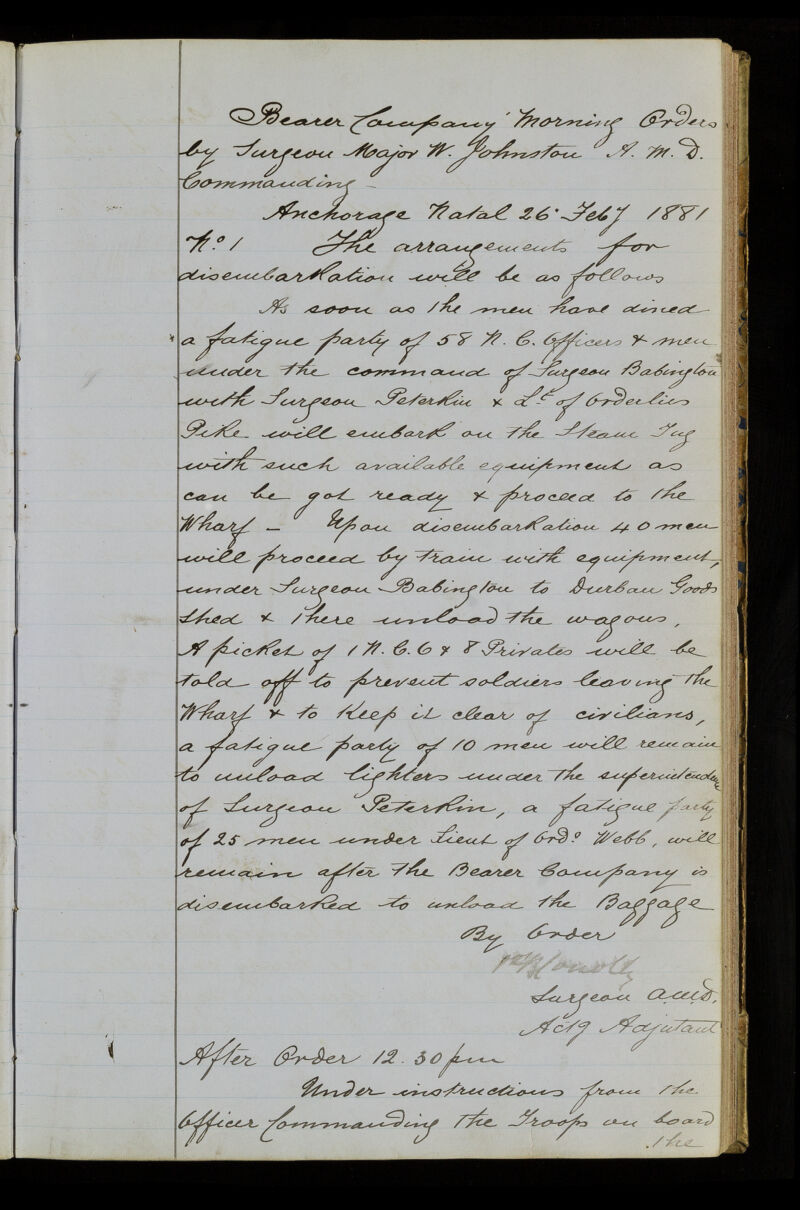 Bearer Company Morning Orders
by Surgeon Major W. Johnston A. M. D.
Commanding -
Anchorage Natal 26 Feby 1881
No. 1 The arrangements for
disembarkation will be as follows
As soon as the men have dined
a fatigue party of 58 N. C. Officers & men
under the command of Surgeon Babington
with Surgeon Peterkin & Lt. of Orderlies
Pike will embark on the Steam Tug
with such available equipment as
can be got ready & proceed to the
Wharf - Upon disembarkation 40 men
will proceed by train with equipment,
under Surgeon Babington to Durban Goods
shed & there unload the wagons.
A picket of 1 N. C. O & 8 Privates will be
told off to prevent soldiers leaving the
Wharf & to keep it clear of civilians,
a fatigue party of 10 men will remain
to unload lighters under the superintendence
of Surgeon Peterkin, a fatigue party
of 25 men under Lieut of Ordo. Webb, will
remain after the Bearer Company is
disembarked to unload the Baggage
By Order
Surgeon A.M.D.
Actg Adjutant
After Order 12.30 pm
Under instructions from the
Officer Commanding the Troops on board
the